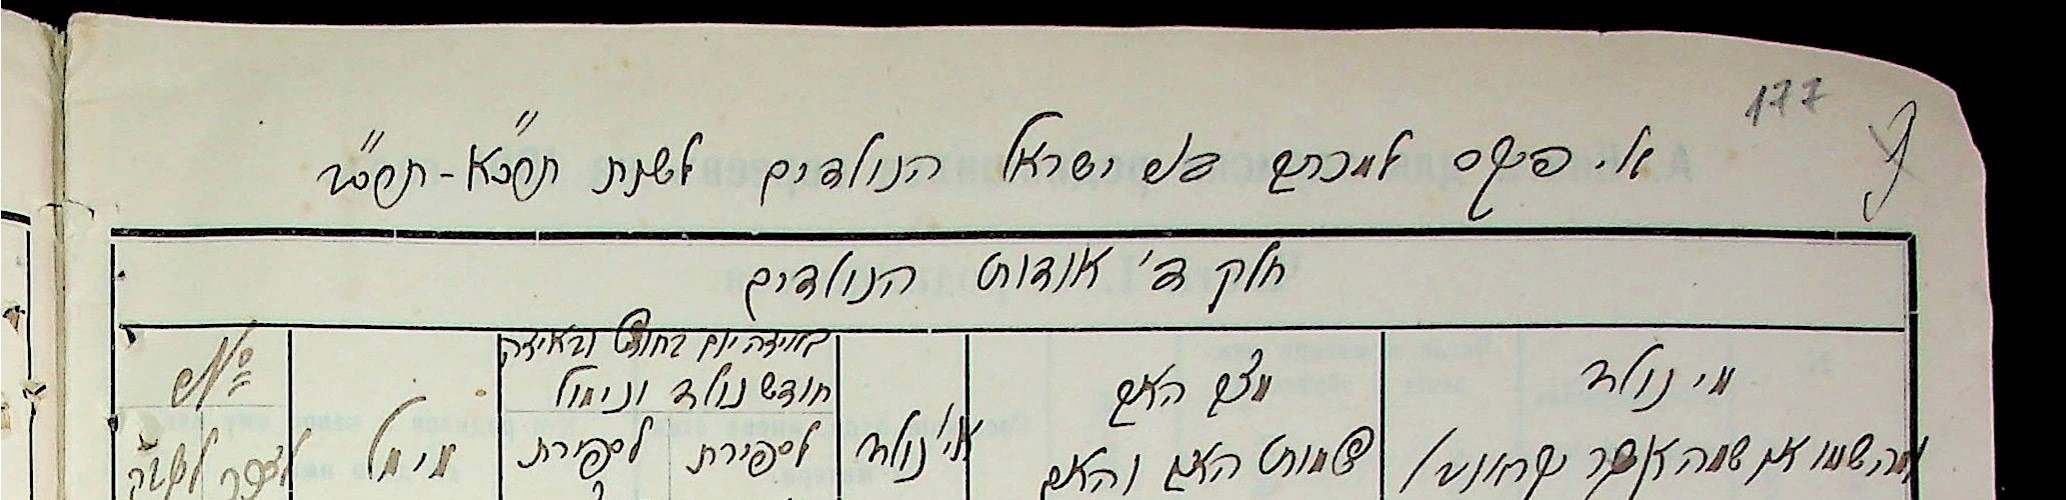 177
אי פנקס למכתב בני ישראל הנולדים לשנת תרס"א - תרס"ב
חלק ד' אודות הנולדים
מי נולד
ומה שמו או שמה אשר קראו
מצב האב
שמות האב והאם
אי' נולד
באיזה יום בחודש ובאיזה
חודש נולד ונימול
לספירת
לספירת
מי מל
№